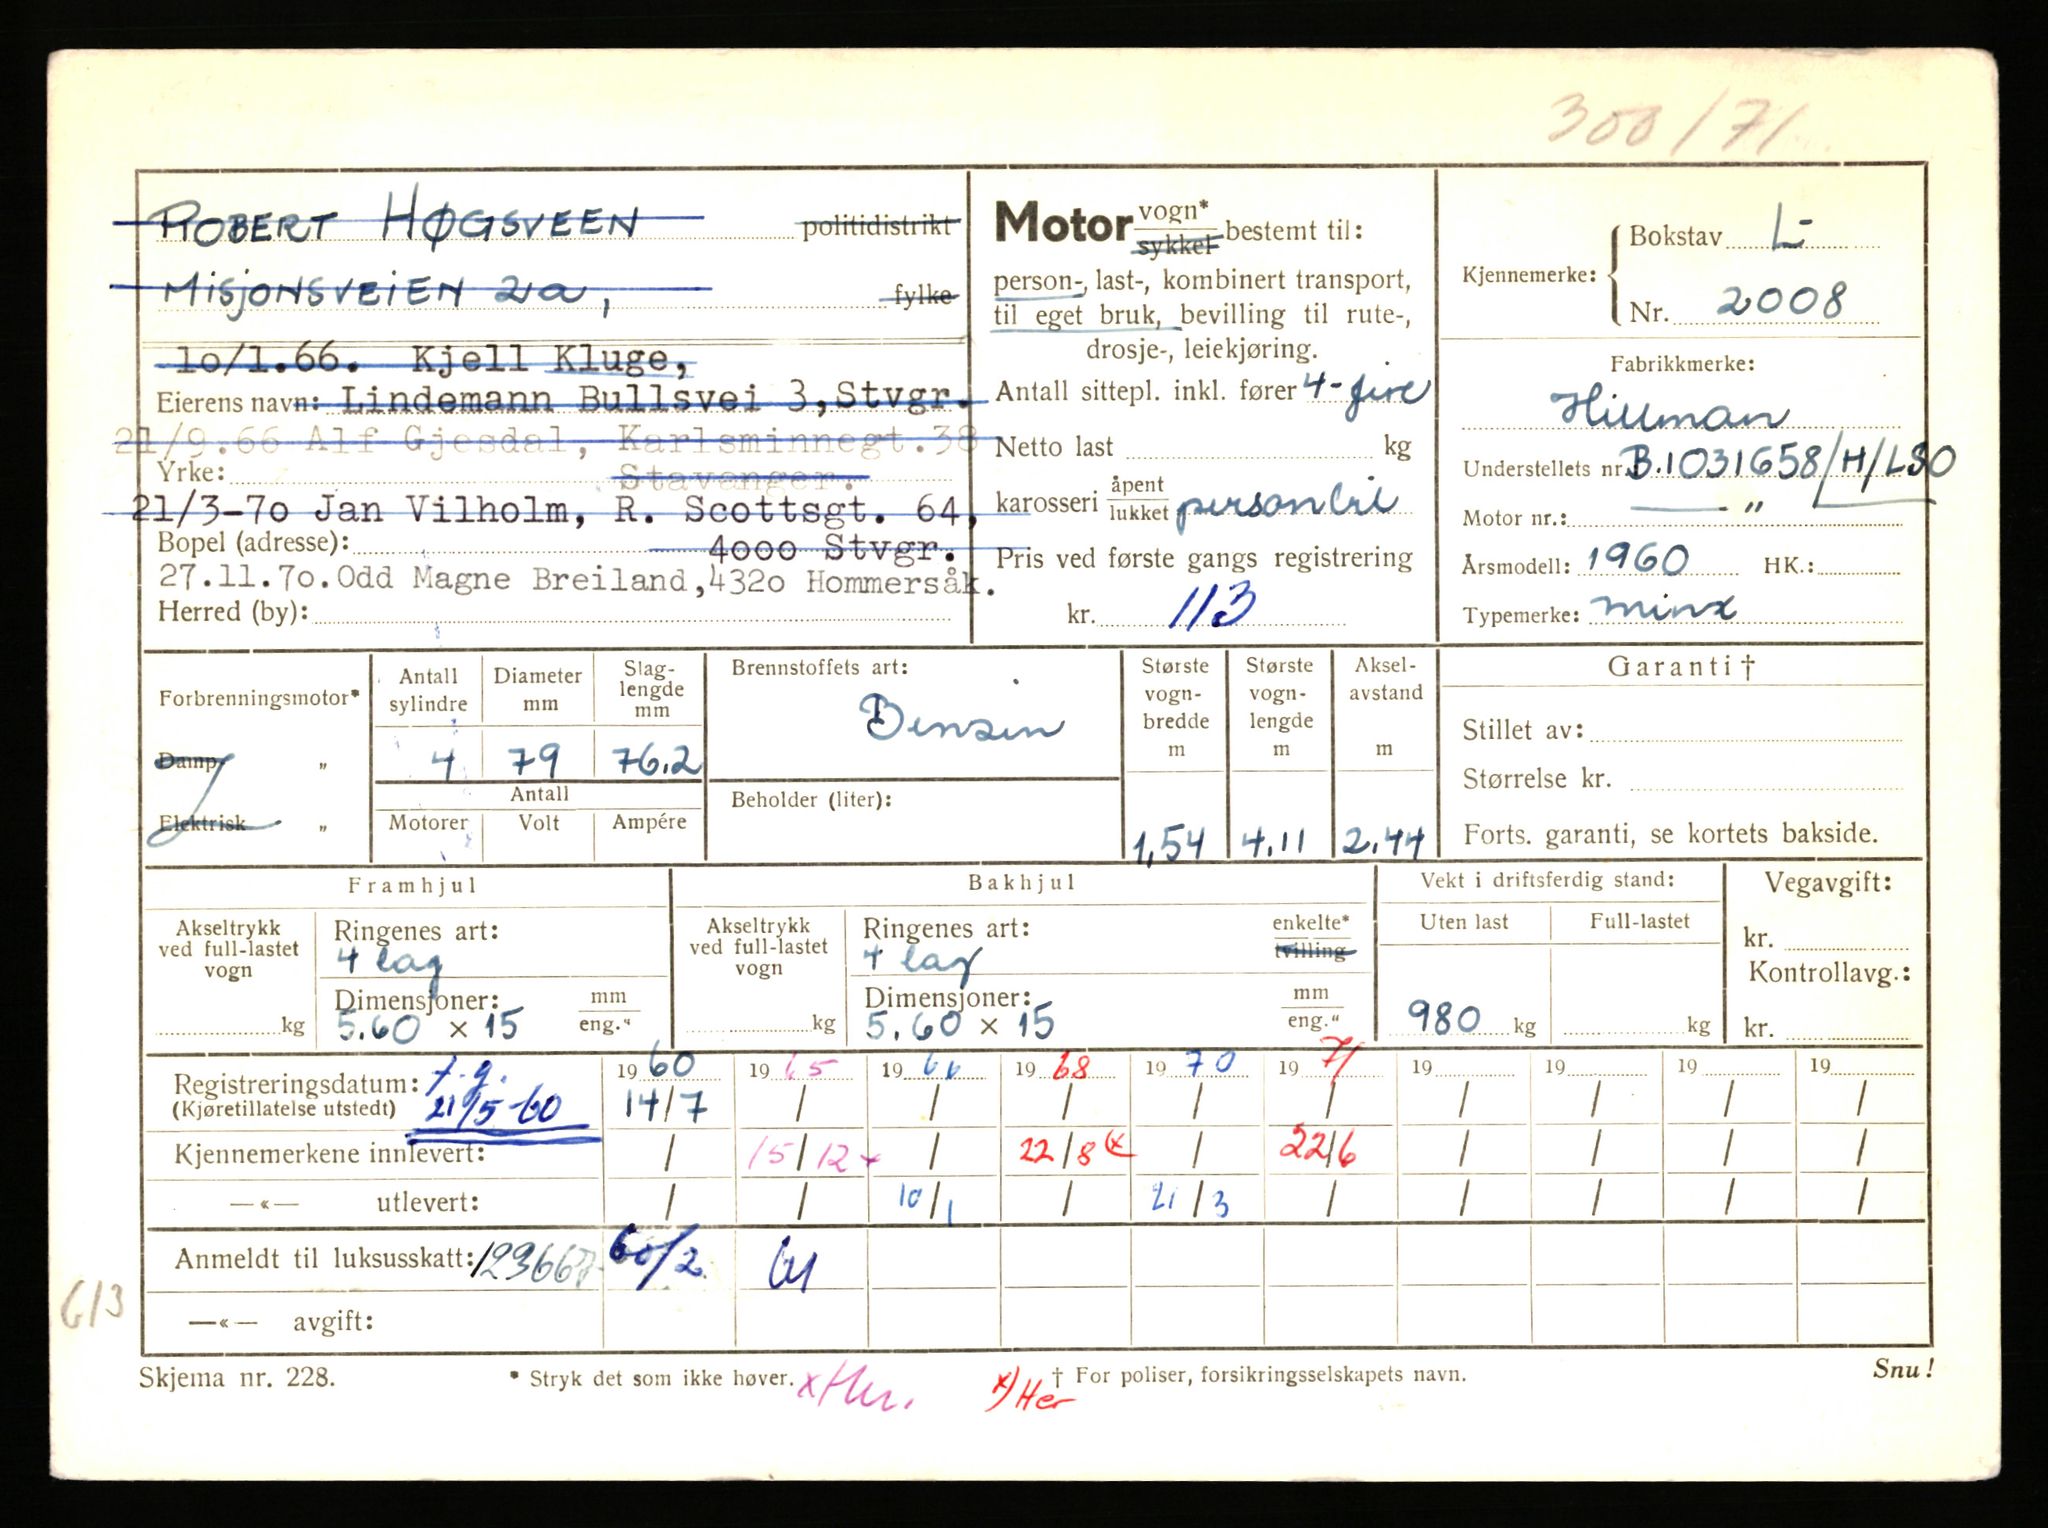 300/71
ROBERT HØGSVEEN politidistrikt
MISJONSVEIEN 2a, fylke
10/1.66. Kjell Kluge,
Eierens navn: Lindemann Bullsvei 3, Stvgr.
21/9.66 Alf Gjesdal, Karlsminnegt.38
Yrke: Stavanger.
21/3-70 Jan Vilholm, R. Scottsgt. 64,
Bopel (adresse): 4000 Stvgr.
27.11.70.Odd Magne Breiland,4320 Hommersåk.
Herred (by):
Motor vogn* sykkel bestemt til:
person-, last-, kombinert transport,
til eget bruk, bevilling til rute-,
drosje-, leiekjøring.
Antall sittepl. inkl. fører 4-fire
Netto last kg
karosseri åpent lukket personbil
Pris ved første gangs registrering
kr. 113
Kjennemerke: Bokstav L-
Nr. 2008
Fabrikkmerke:
Hillman
Understellets nr. B.1031658/H/LSO
Motor nr.: — " —
Årsmodell: 1960 HK.:
Typemerke: minx
Forbrenningsmotor*
Damp „
Elektrisk „
Antall sylindre Diameter mm Slaglengde mm
4 79 76.2
Antall
Motorer Volt Ampére
Brennstoffets art:
Bensin
Beholder (liter):
Største vognbredde m 1,54
Største vognlengde m 4.11
Akselavstand m 2.44
Garanti †
Stillet av:
Størrelse kr.
Forts. garanti, se kortets bakside.
Framhjul Bakhjul Vekt i driftsferdig stand: Vegavgift:
Akseltrykk ved full-lastet vogn kg
Ringenes art:
4 lag
Dimensjoner: mm eng."
5.60 × 15
Akseltrykk ved full-lastet vogn kg
Ringenes art: enkelte* tvilling
4 lag
Dimensjoner: mm eng."
5.60 × 15
Uten last Full-lastet
980 kg kg
kr.
Kontrollavg.:
kr.
Registreringsdatum: f.g. 1960 1965 1966 1968 1970 1971 19 19 19 19
(Kjøretillatelse utstedt) 21/5-60 14/7 / / / / / / / / /
Kjennemerkene innlevert: / 15/12 x / 22/8 (x / 22/6 / / / /
—«— utlevert: / / 10/1 / 21/3 / / / / /
Anmeldt til luksusskatt: 60/2 61
—«— avgift:
613
Skjema nr. 228. * Stryk det som ikke høver. x Her. x) Her † For poliser, forsikringsselskapets navn. Snu!